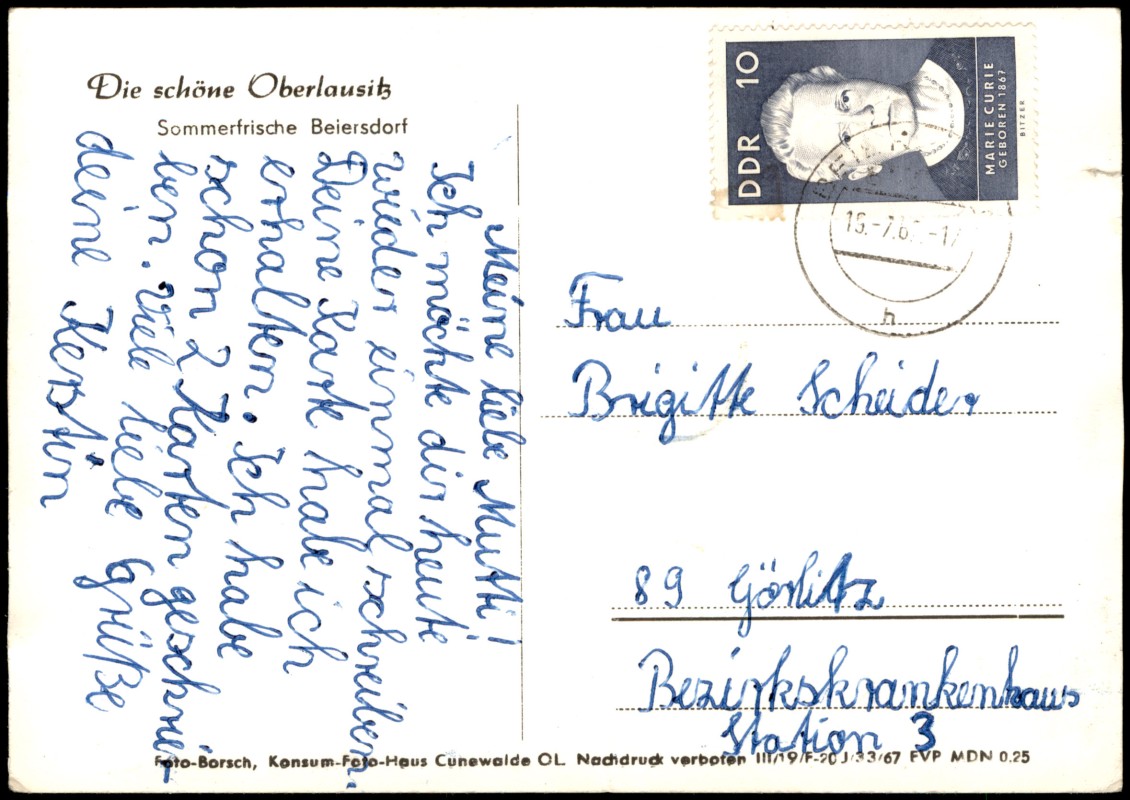 Die schöne Oberlausitz
Sommerfrische Beiersdorf
Meine liebe Mutti!
Ich möchte dir heute
wieder einmal schreiben.
Deine Karte habe ich
erhalten. Ich habe
schon 2 Karten geschrie-
ben. Viele liebe Grüße
deine Kerstin
DDR 10
MARIE CURIE
GEBOREN 1867
BITZER
h
Frau
Brigitte Scheider
89 Görlitz
Bezirkskrankenhaus
Station 3
Foto-Borsch, Konsum-Foto-Haus Cunewalde OL. Nachdruck verboten III/19/F-20 J/33/67 FVP MDN 0.25